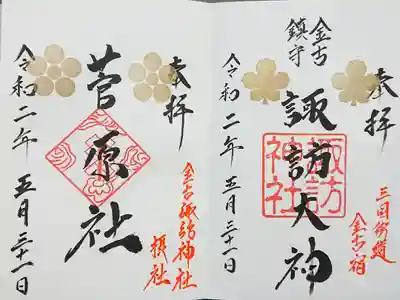 奉拝
三国街道
金古宿
諏訪大神
諏訪
神社
金古
鎮守
令和二年五月三十一日
奉拝
金古諏訪神社
摂社
菅原社
令和二年五月三十一日